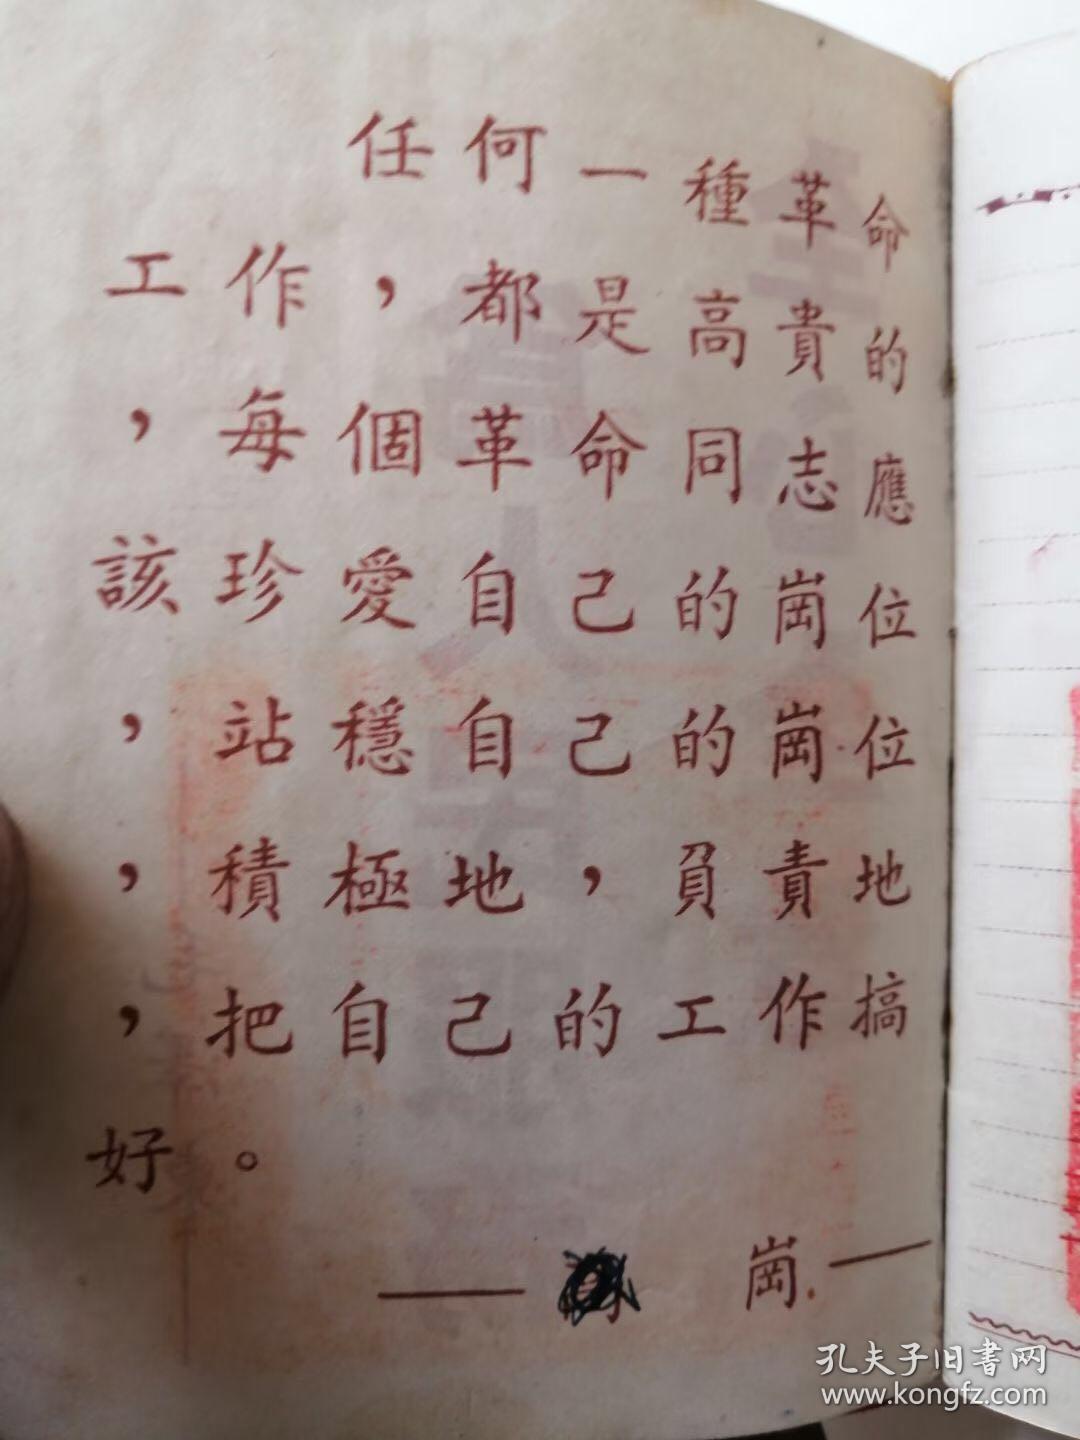 任何一種革命的
工作，都是高貴的
，每個革命同志應
該珍愛自己的崗位
，站穩自己的崗位
，積極地，負責地
，把自己的工作搞
好。
——崗——
孔夫子旧書网
www.kongfz.com